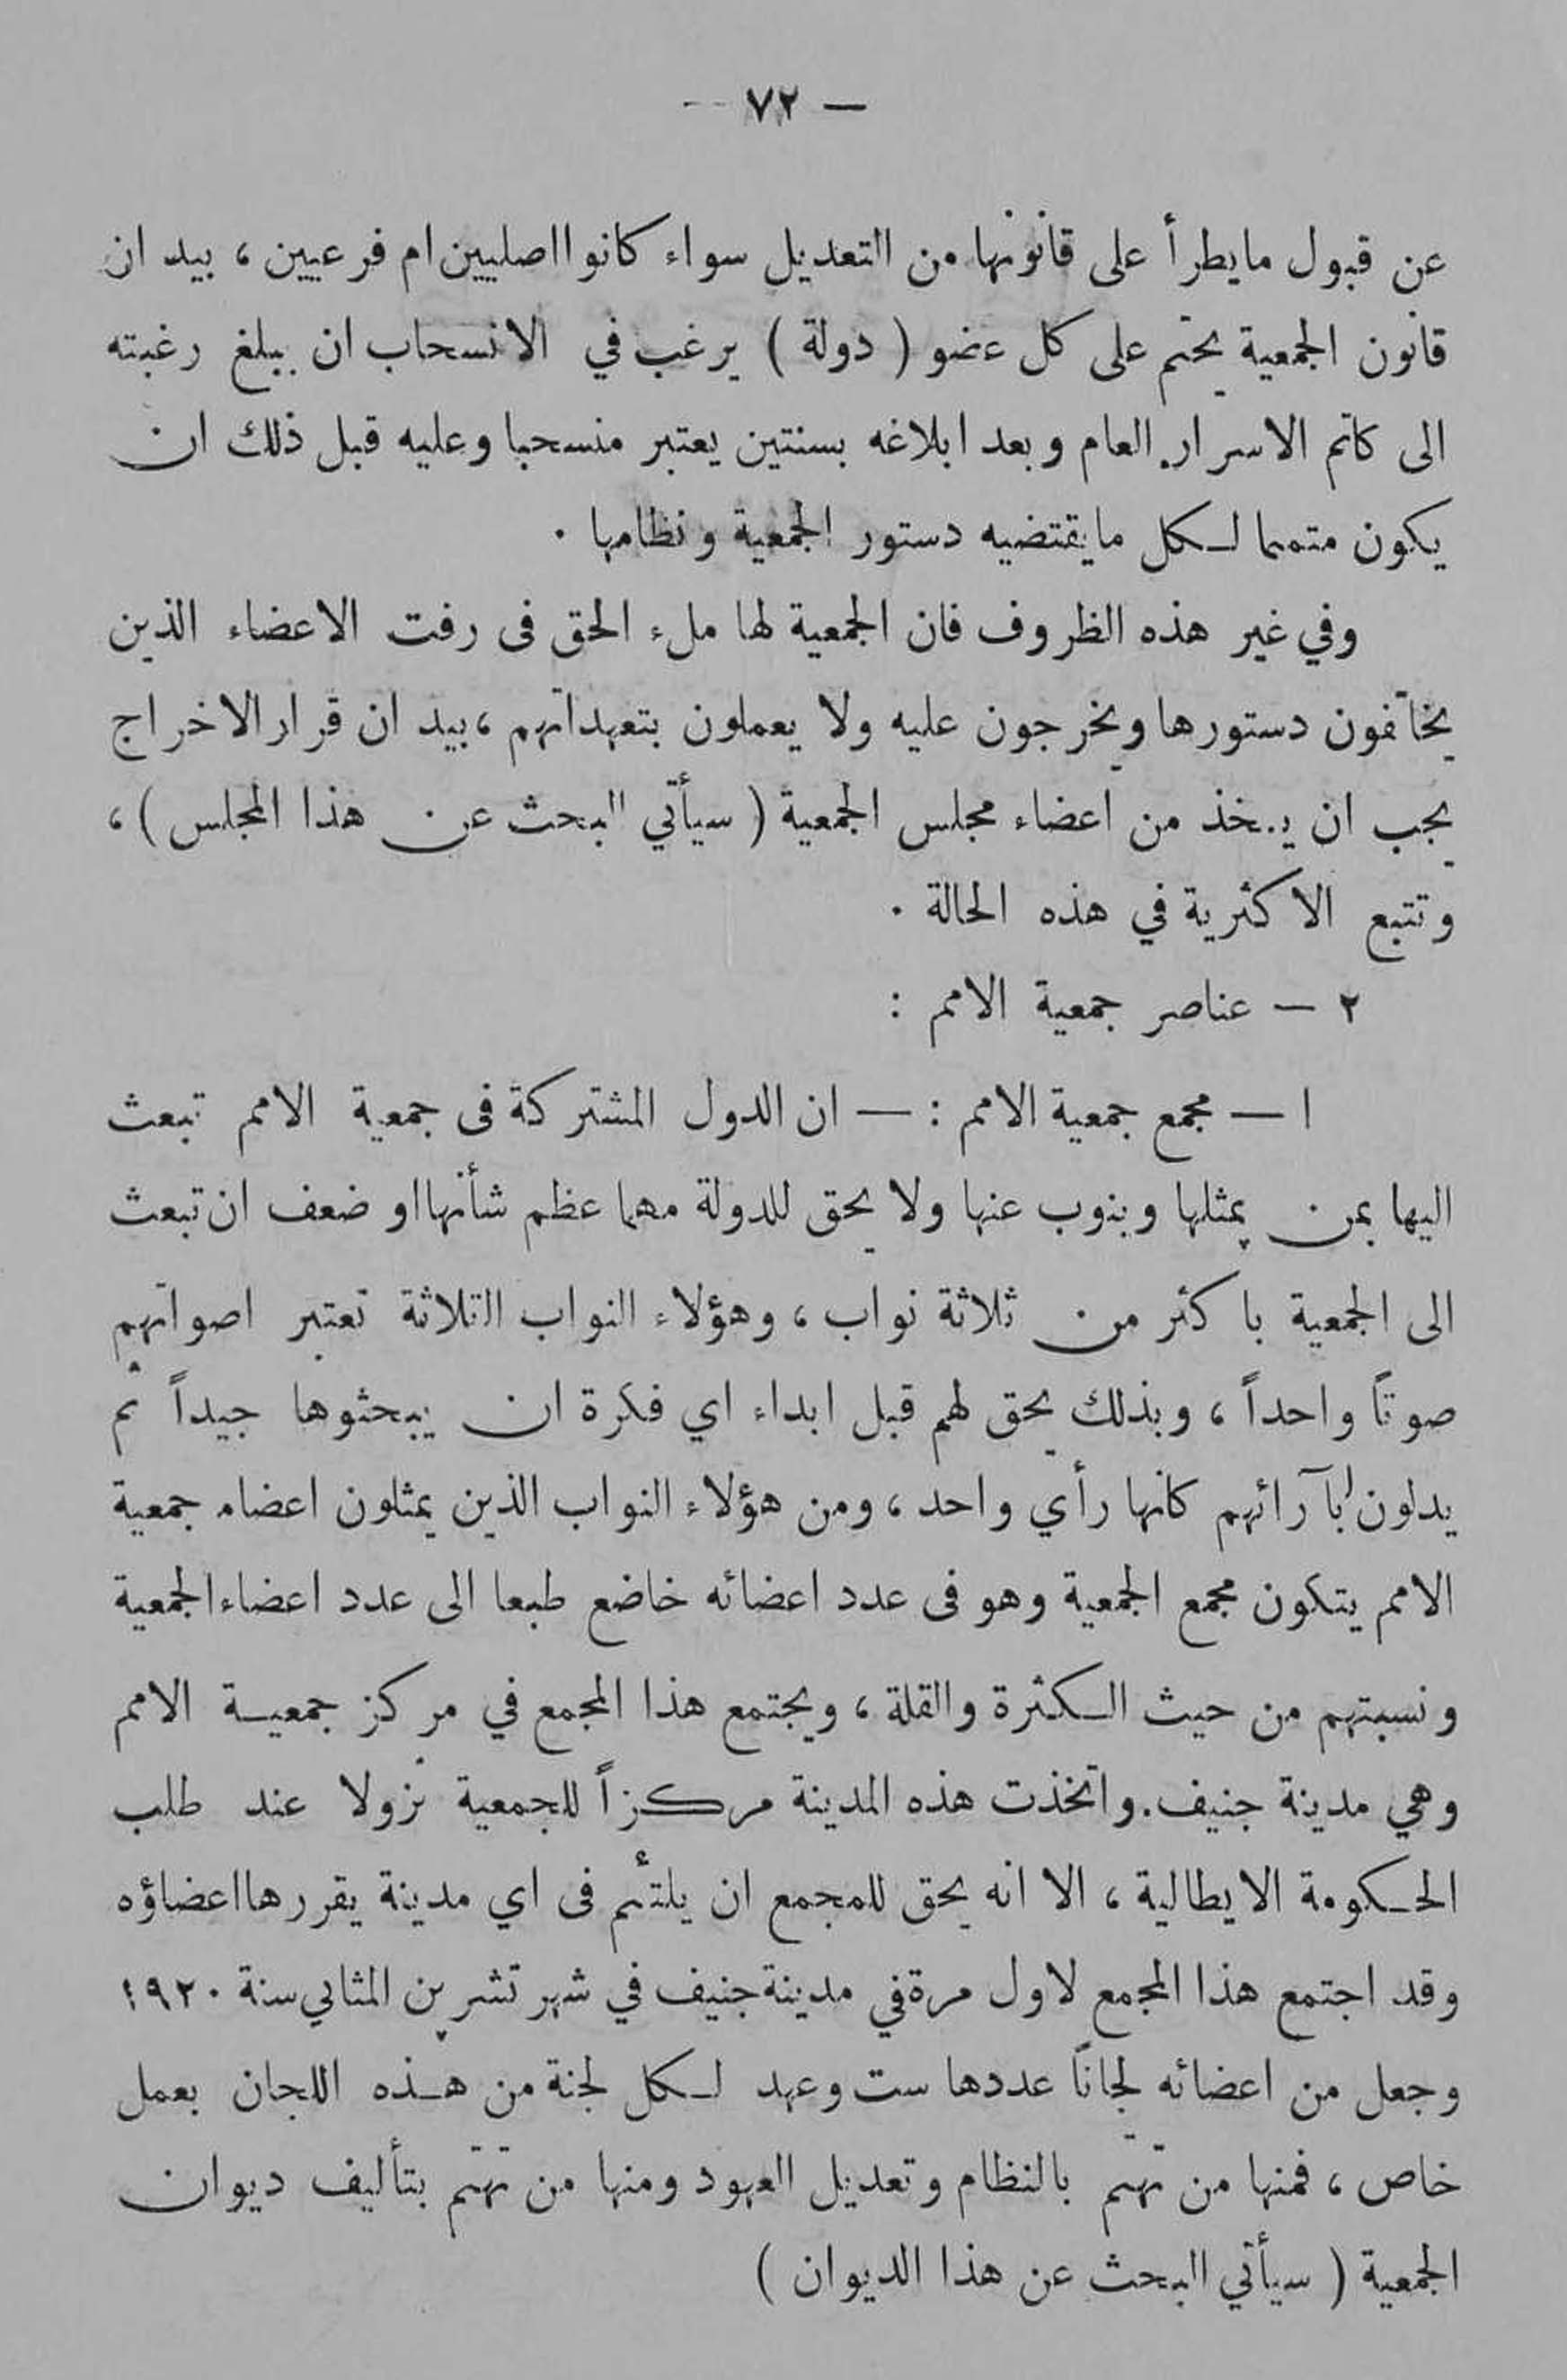 — ٧٢ —
عن قبول مايطرأ على قانونها من التعديل سواء كانوا اصليين ام فرعيين ، بيد ان
قانون الجمعية يحتم على كل عضو ( دولة ) يرغب في الانسحاب ان يبلغ رغبته
الى كاتم الاسرار العام وبعد ابلاغه بسنتين يعتبر منسحبا وعليه قبل ذلك ان
يكون متمما لكل مايقتضيه دستور الجمعية ونظامها .
وفي غير هذه الظروف فان الجمعية لها ملء الحق فى رفت الاعضاء الذين
يخالفون دستورها ويخرجون عليه ولا يعملون بتعهداتهم ، بيد ان قرار الاخراج
يجب ان يتخذ من اعضاء مجلس الجمعية ( سيأتي البحث عن هذا المجلس ) ،
وتتبع الاكثرية في هذه الحالة .
٢ — عناصر جمعية الامم :
ا — مجمع جمعية الامم : — ان الدول المشتركة فى جمعية الامم تبعث
اليها بمن يمثلها وينوب عنها ولا يحق للدولة مهما عظم شأنها او ضعف ان تبعث
الى الجمعية باكثر من ثلاثة نواب ، وهؤلاء النواب الثلاثة تعتبر اصواتهم
صوتاً واحداً ، وبذلك يحق لهم قبل ابداء اي فكرة ان يبحثوها جيداً ثم
يدلون بآرائهم كانها رأي واحد ، ومن هؤلاء النواب الذين يمثلون اعضاء جمعية
الامم يتكون مجمع الجمعية وهو فى عدد اعضائه خاضع طبعا الى عدد اعضاء الجمعية
ونسبتهم من حيث الكثرة والقلة ، ويجتمع هذا المجمع في مركز جمعية الامم
وهي مدينة جنيف . واتخذت هذه المدينة مركزاً للجمعية نزولا عند طلب
الحكومة الايطالية ، الا انه يحق للمجمع ان يلتئم فى اي مدينة يقررها اعضاؤه
وقد اجتمع هذا المجمع لاول مرة في مدينة جنيف في شهر تشرين الثاني سنة ١٩٢٠
وجعل من اعضائه لجاناً عددها ست وعهد لكل لجنة من هذه اللجان بعمل
خاص ، فمنها من تهتم بالنظام وتعديل العهود ومنها من تهتم بتأليف ديوان
الجمعية ( سيأتي البحث عن هذا الديوان )